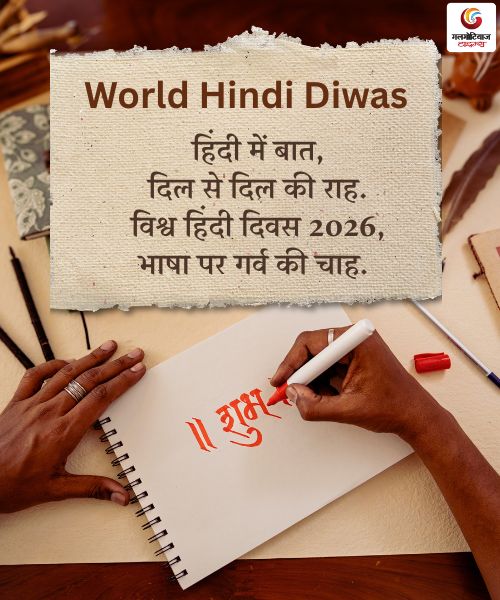 मलमोटिवाज
टाइम्स
World Hindi Diwas
हिंदी में बात,
दिल से दिल की राह.
विश्व हिंदी दिवस 2026,
भाषा पर गर्व की चाह.
॥ शुभ